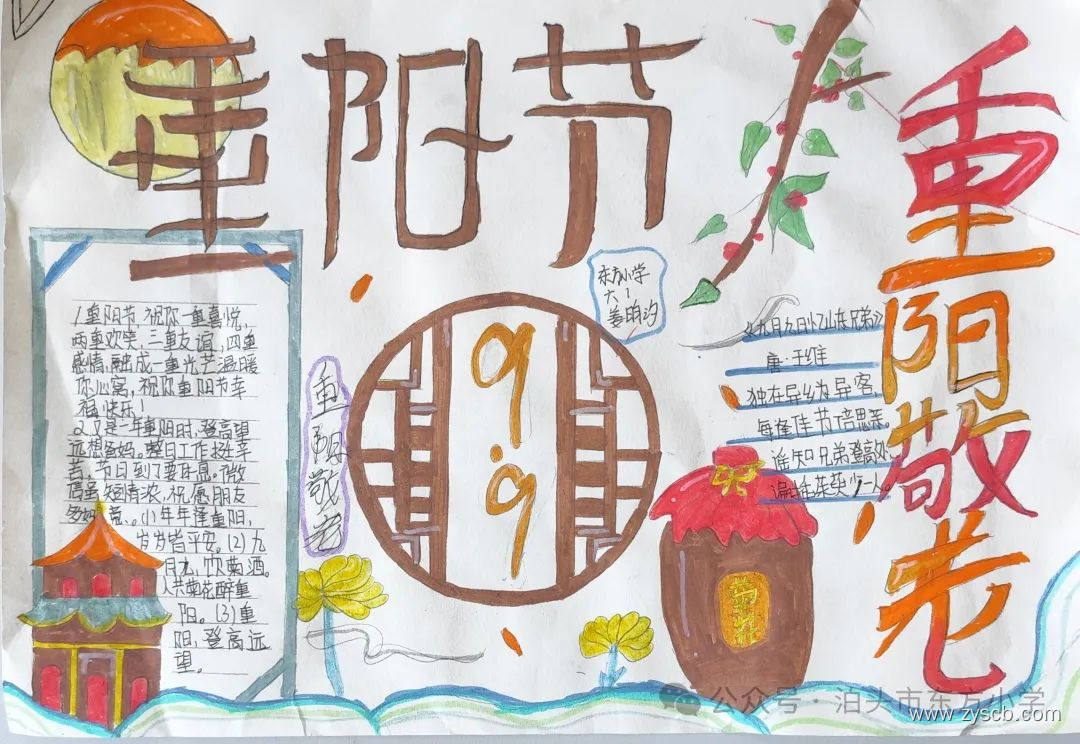 重阳节
重阳敬老
东方小学
六1
姜明汐
1重阳节,祝你一重喜悦,
两重欢笑,三重友谊,四重
感情,融成一重光芒温暖
你心窝,祝你重阳节幸
福快乐!
2又是一年重阳时,登高望
远想爸妈。整日工作
节日到了要休息。微
信虽短情浓,祝愿朋友
(1)年年逢重阳,
岁岁皆平安。(2)九
月九,饮菊酒。
人共菊花醉重
阳。(3)重
阳,登高远
望。
重阳敬老
9.9
《九月九日忆山东兄弟》
唐·王维
独在异乡为异客,
每逢佳节倍思亲。
遥知兄弟登高处,
遍插茱萸少一人。
菊花
公众号·泊头市东方小学
www.zyscb.com